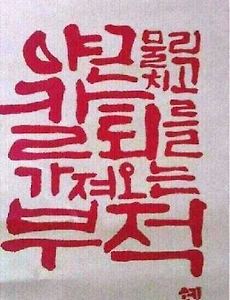 야근물리치고
칼퇴를
가져오는
부적